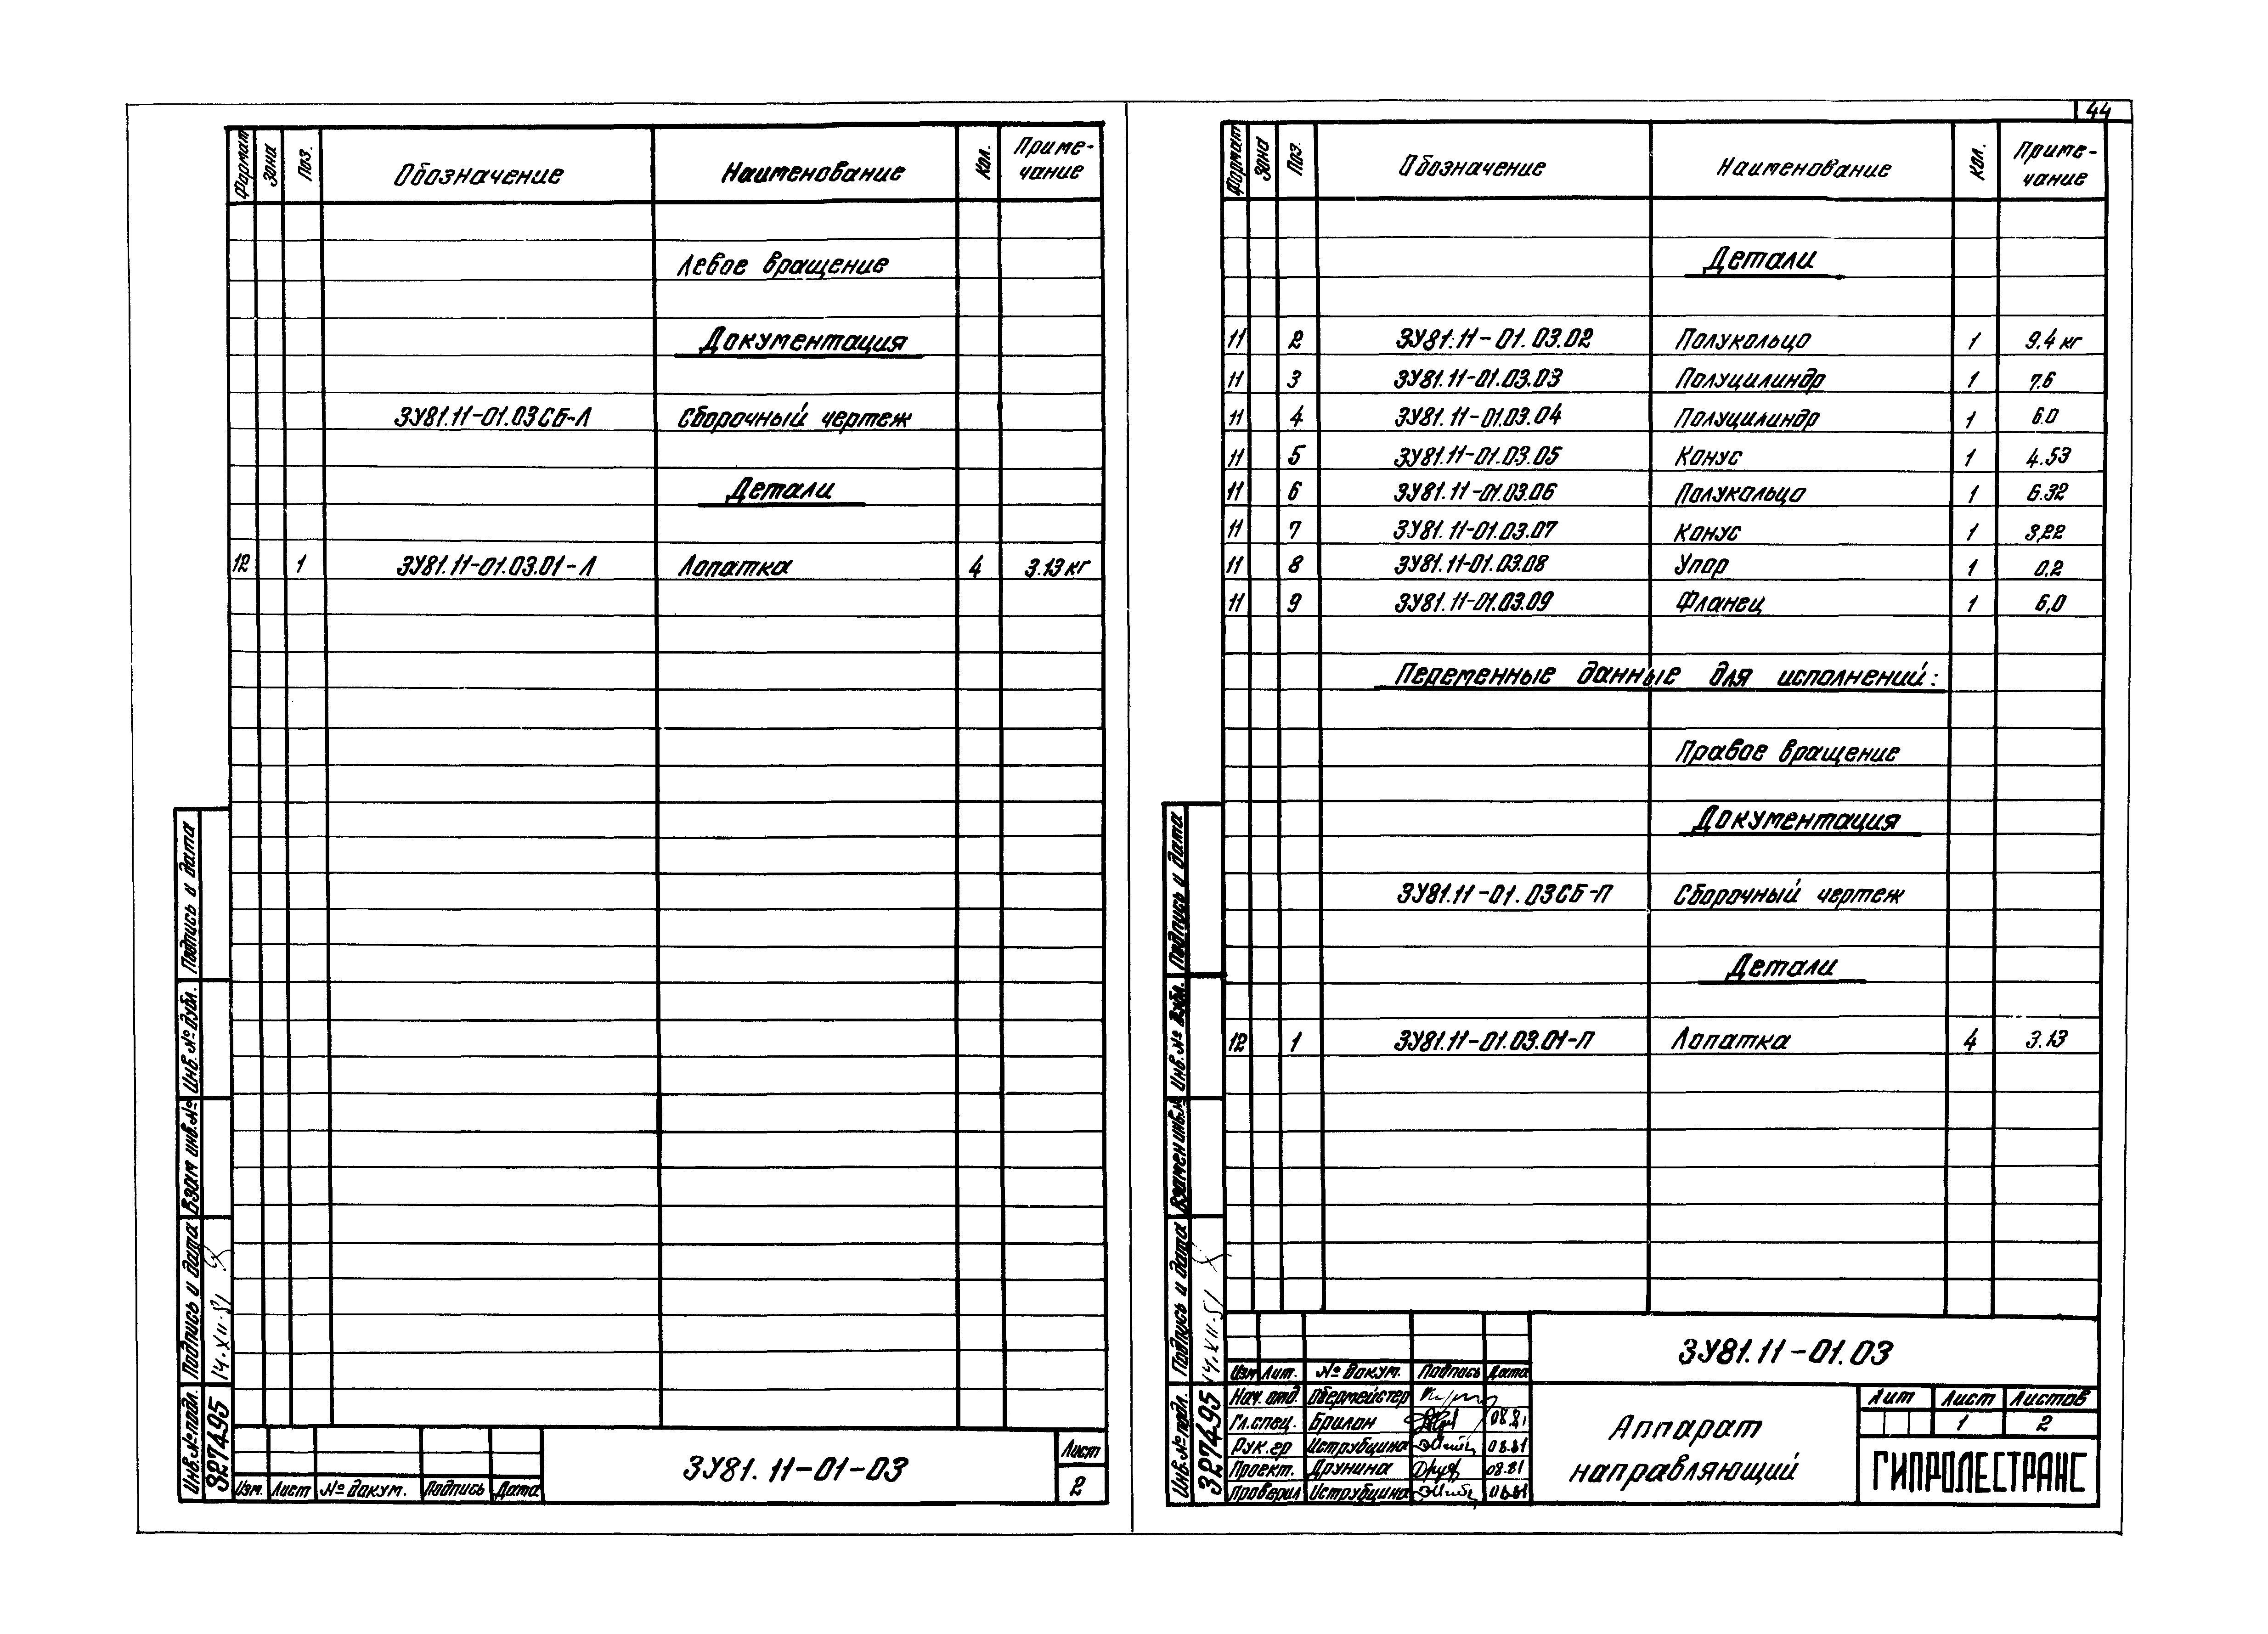 44
Формат Зона Поз. Обозначение Наименование Кол. Приме-
чание
Левое вращение
Документация
ЗУ81.11-01.03СБ-Л Сборочный чертеж
Детали
12 1 ЗУ81.11-01.03.01-Л Лопатка 4 3.13 кг
Подпись и дата
Инв. № дубл.
Взам инв. №
Подпись и дата 14.XII.81
Инв. № подл. 327495
Изм. Лист № докум. Подпись Дата
ЗУ81.11-01-03
Лист
2
Формат Зона Поз. Обозначение Наименование Кол. Приме-
чание
Детали
11 2 ЗУ81.11-01.03.02 Полукольцо 1 9.4 кг
11 3 ЗУ81.11-01.03.03 Полуцилиндр 1 7.6
11 4 ЗУ81.11-01.03.04 Полуцилиндр 1 6.0
11 5 ЗУ81.11-01.03.05 Конус 1 4.53
11 6 ЗУ81.11-01.03.06 Полукольцо 1 6.32
11 7 ЗУ81.11-01.03.07 Конус 1 3,22
11 8 ЗУ81.11-01.03.08 Упор 1 0,2
11 9 ЗУ81.11-01.03.09 Фланец 1 6,0
Переменные данные для исполнений:
Правое вращение
Документация
ЗУ81.11-01.03СБ-П Сборочный чертеж
Детали
12 1 ЗУ81.11-01.03.01-П Лопатка 4 3.13
Подпись и дата
Инв. № дубл.
Взамен инв.№
Подпись и дата 14.XII.81
Инв. № подл. 327495
ЗУ81.11-01.03
Изм Лит. № докум. Подпись Дата
Нач. отд. Обермейстер
Гл.спец. Брилон 08.81
Рук.гр Иструбцина 08.81
Проект. Друнина 08.81
Проверил Иструбцина 08.81
Аппарат
направляющий
Лит Лист Листов
1 2
ГИПРОЛЕСТРАНС